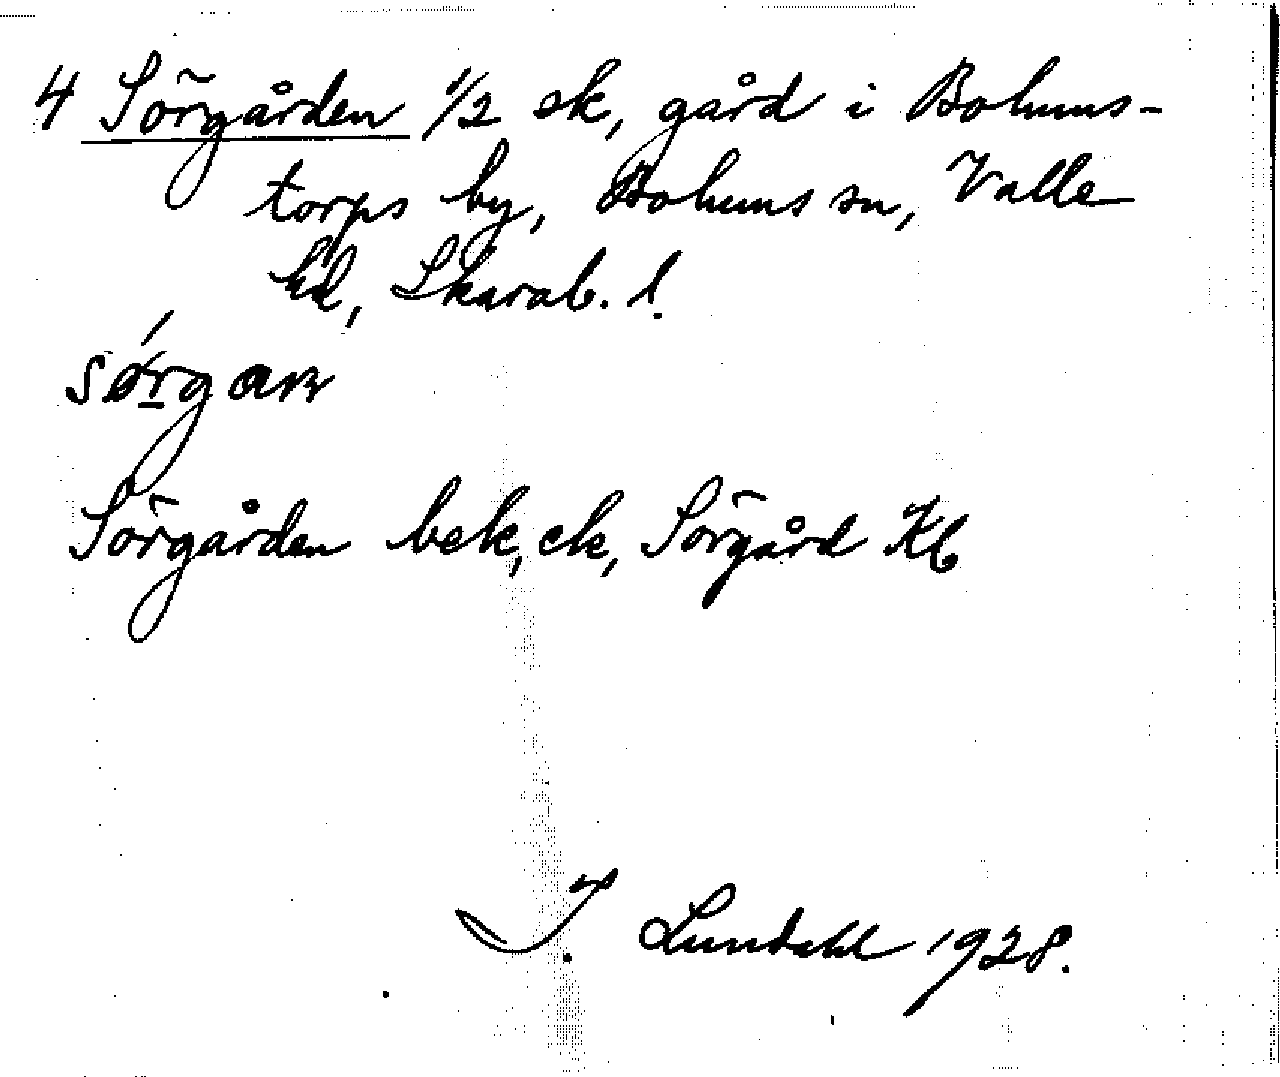 4 Sörgården 1/2 ek, gård i Bolums-
torps by, Bolums sn, Valle
hd, Skarab. l.
Sörgården bek, ek, Sörgård Kb
I. Lundahl 1928.